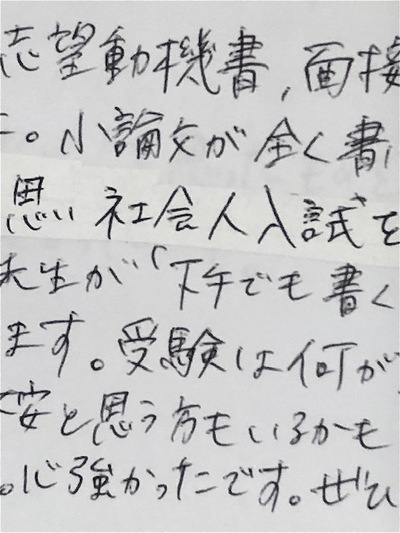 志望動機書,面接
た。小論文が全く書
思い 社会人入試を
先生が「下手でも書く
ます。受験は何が
安と思う方もいるかも
。心強かったです。ぜひ